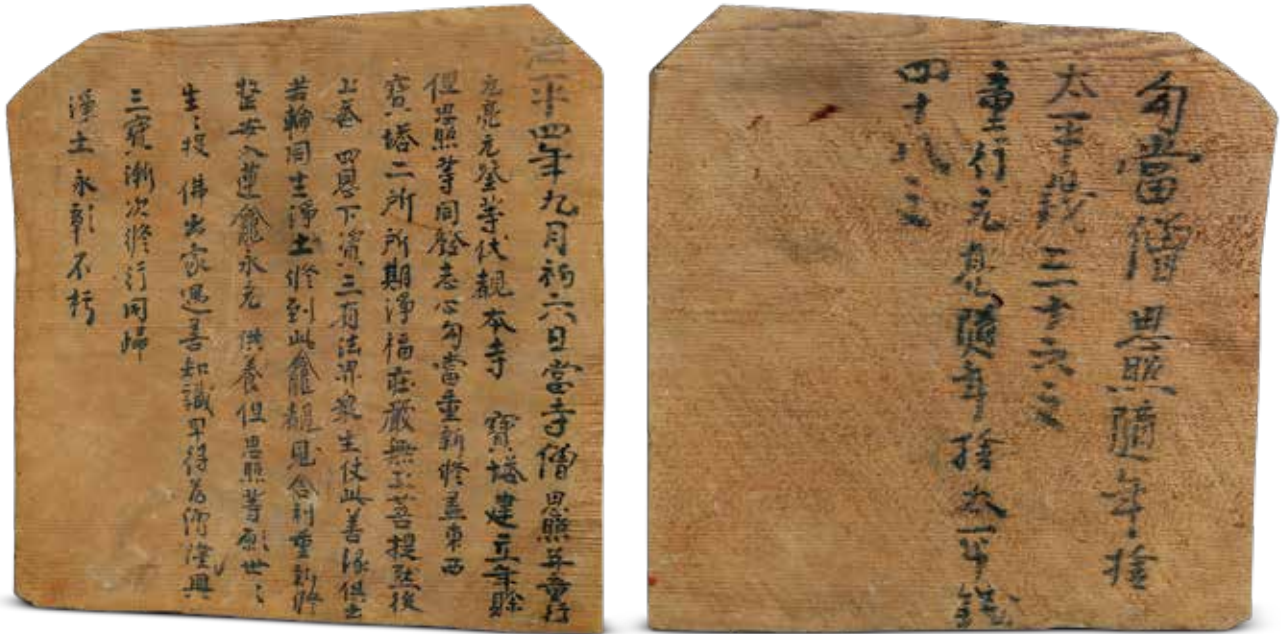 平四年九月初六日當寺僧思照并童行
元亮元登等伏覩本寺 寶塔建立年賒
但思照等同發志心勾當重新修蓋東西
寶塔二所所期淨福莊嚴無上菩提然後
上答 四恩下資三有法界衆生仗此善緣俱出
苦輪同生淨土修到此龕覩見舍利重新修
整安入蓮龕永充 供養但思照等願世〻
生〻投 佛出家遇善知識早得為僧隆興
三寶漸次修行同歸
淨土永彰不朽
勾當僧思照隨年捨
太平錢三十六文
童行元真隨年捨太平錢
四十八文